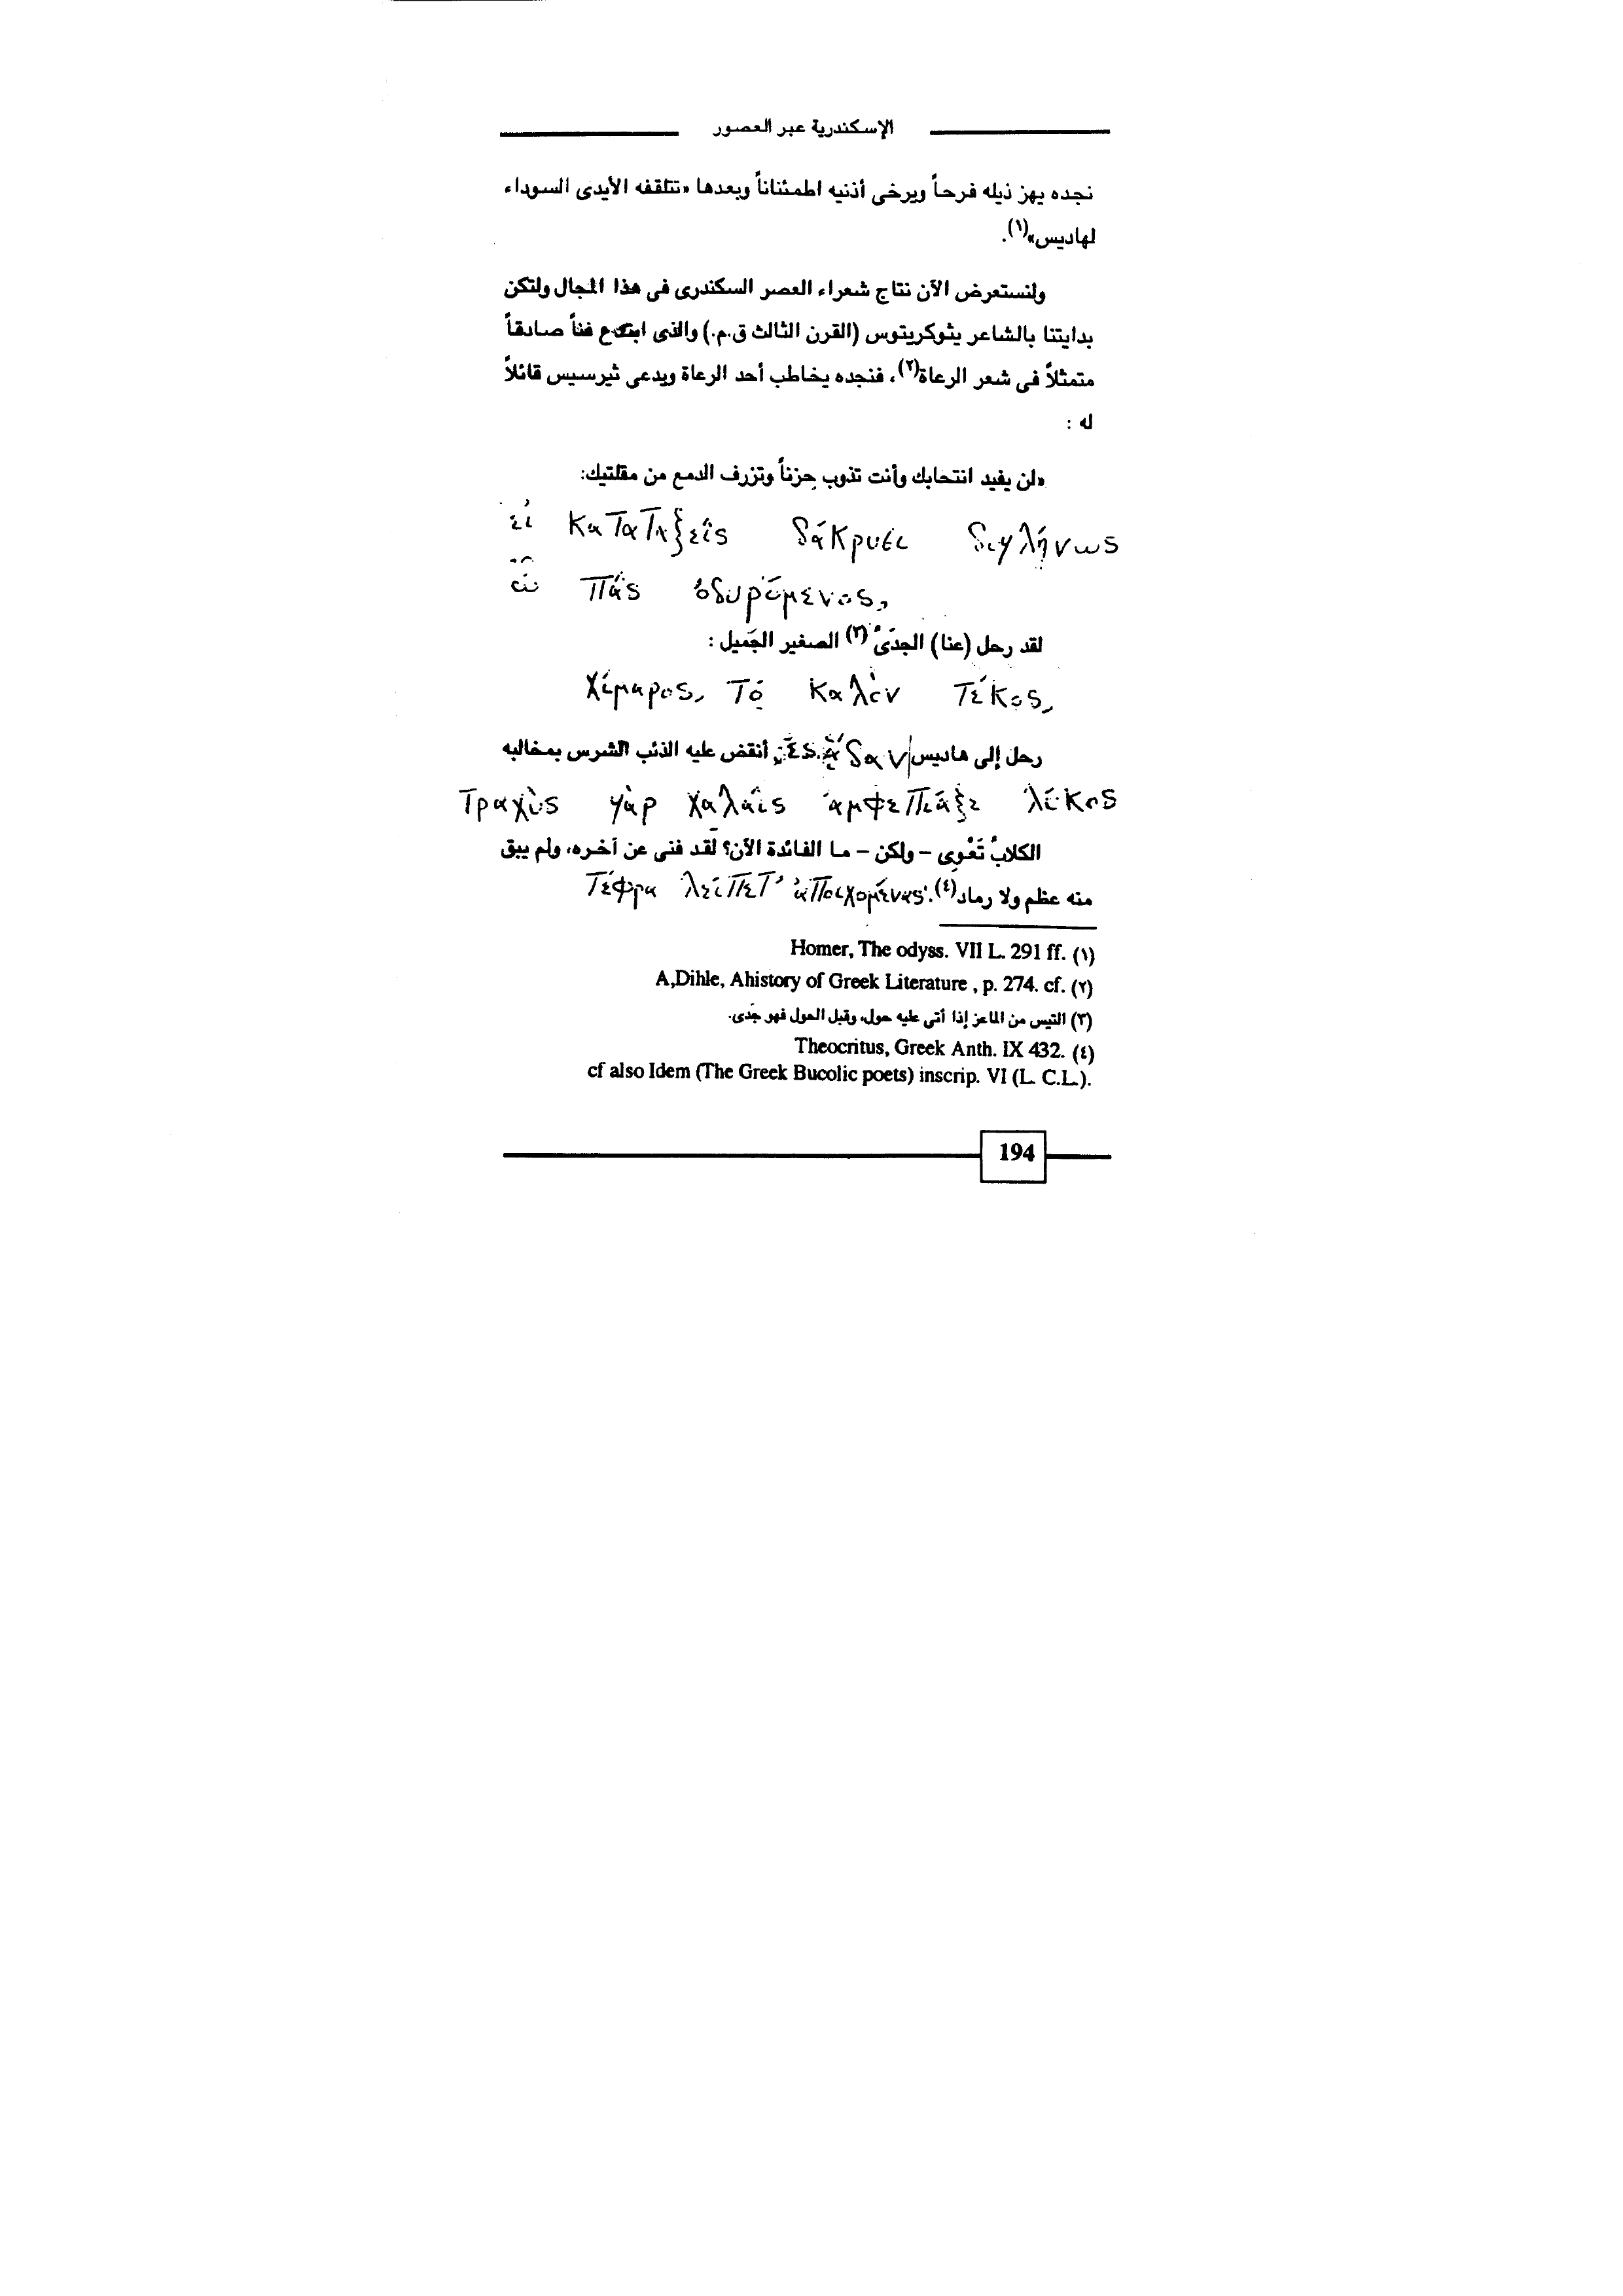 الإسكندرية عبر العصور
نجده يهز ذيله فرحاً ويرخى أذنيه اطمئناناً وبعدها «تتلقفه الأيدى السوداء
لهاديس»(١).
ولنستعرض الآن نتاج شعراء العصر السكندرى فى هذا المجال ولتكن
بدايتنا بالشاعر يثوكريتوس (القرن الثالث ق.م.) والذى ابتدع فناً صادقاً
متمثلاً فى شعر الرعاة(٢)، فنجده يخاطب أحد الرعاة ويدعى ثيرسيس قائلاً
له :
«لن يفيد انتحابك وأنت تذوب حزناً وتزرف الدمع من مقلتيك:
εἰ καταταξεῖς δάκρυσι διγλήνως
ὦπας ὀδυρόμενος,
لقد رحل (عنا) الجدىُ(٣) الصغير الجَميل :
χίμαρος, τὸ καλὸν τέκος,
رحل إلى هاديس ἐς Ἅδαν أنقض عليه الذئب الشرس بمخالبه
τραχὺς γὰρ χαλαῖς ἀμφεπίαξε λύκος
الكلابُ تَعْوِى – ولكن – ما الفائدة الآن؟ لقد فنى عن آخره، ولم يبق
منه عظم ولا رماد(٤). τέφρα λείπετ' ἀποιχομένας
Homer, The odyss. VII L. 291 ff. (١)
A,Dihle, Ahistory of Greek Literature , p. 274. cf. (٢)
(٣) التيس من الماعز إذا أتى عليه حول، وقبل الحول فهو جَدى.
Theocritus, Greek Anth. IX 432. (٤)
cf also Idem (The Greek Bucolic poets) inscrip. VI (L. C.L.).
194